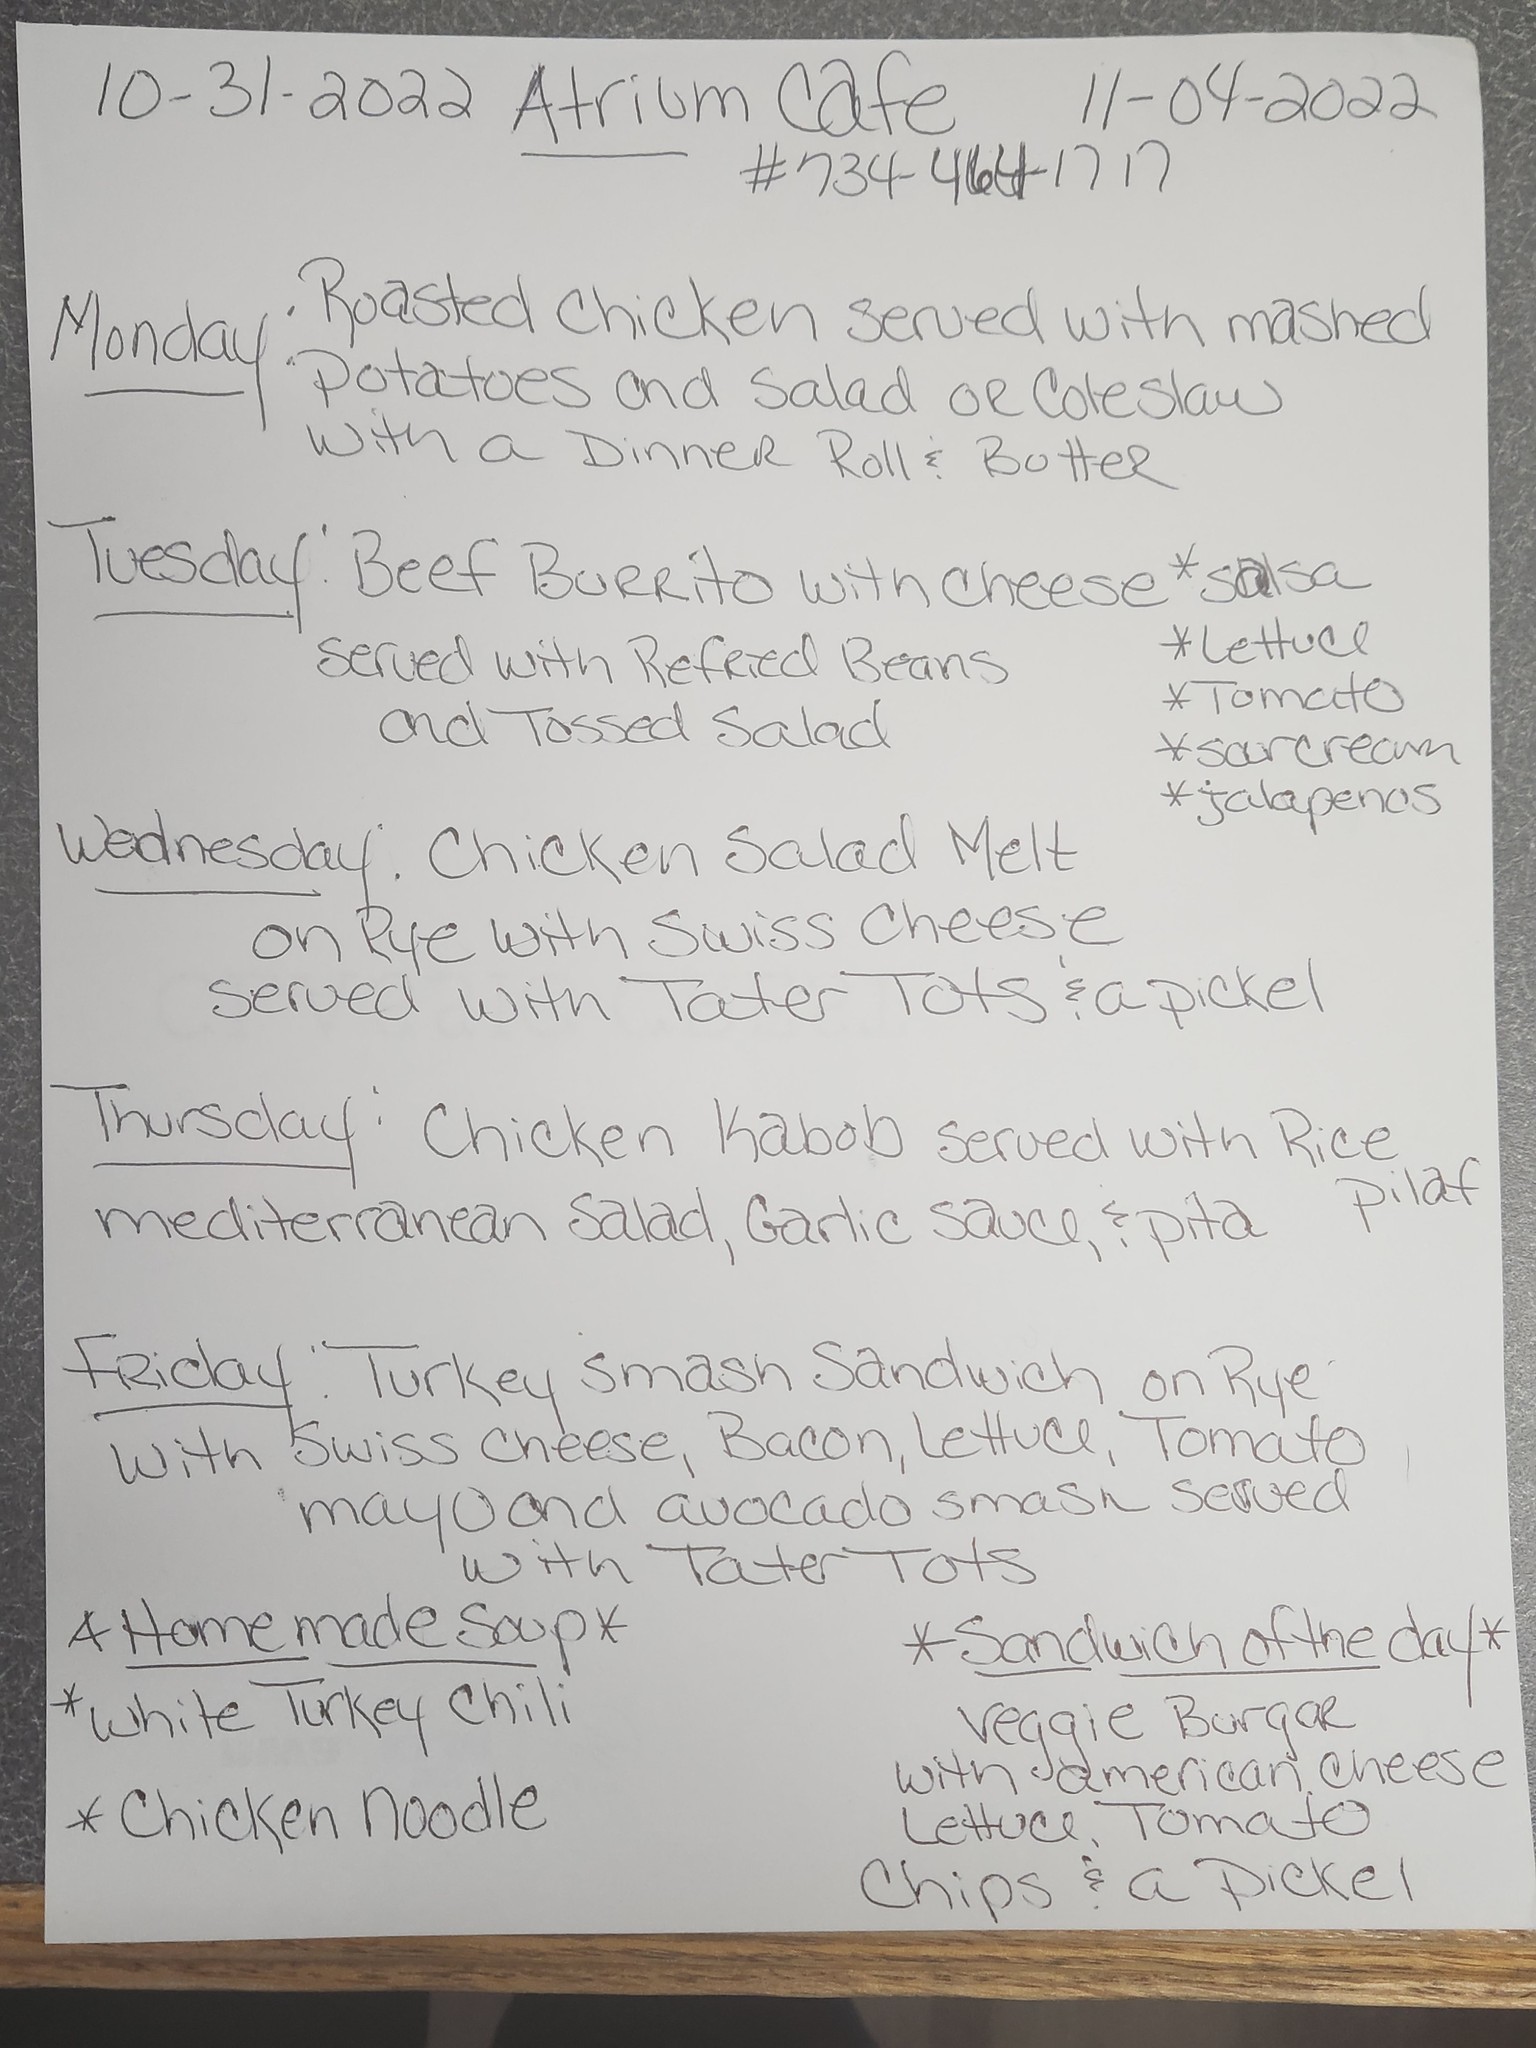 10-31-2022 Atrium Cafe 11-04-2022
#734-464-1717
Monday: Roasted Chicken served with mashed
Potatoes and Salad or Coleslaw
with a Dinner Roll & Butter
Tuesday: Beef Burrito with cheese *salsa
*Lettuce
served with Refried Beans
*Tomato
and Tossed Salad
*sourcream
*jalapenos
Wednesday: Chicken Salad Melt
on Rye with Swiss Cheese
served with Tater Tots & a pickel
Thursday: Chicken Kabob served with Rice
Pilaf
mediterranean Salad, Garlic sauce, & pita
Friday: Turkey smash Sandwich on Rye
with Swiss cheese, Bacon, Lettuce, Tomato
mayo and avocado smash served
with Tater Tots
*Homemade Soup*
*White Turkey Chili
*Chicken Noodle
*Sandwich of the day*
Veggie Burgar
with american cheese
Lettuce, Tomato
Chips & a Pickel